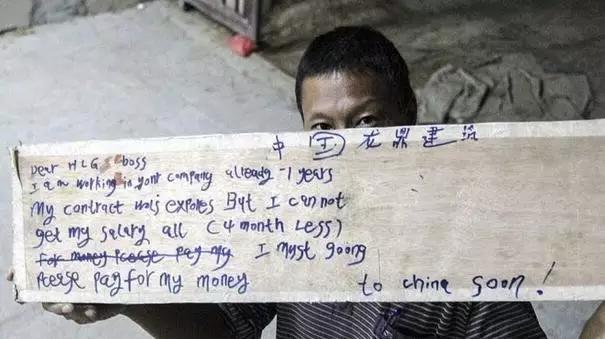 中国龙鼎建筑
Dear HLG boss
I am working in yont company already -1 years
My contract wols expores But I can not
get my salary all (4 month Less)
for money Pleese pay my I myst goong
Pleese pay for my money to china soon!